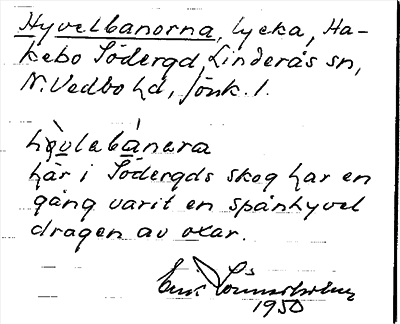 Hyvelbanorna, lycka, Ha-
kebo Södergd, Linderås sn,
N. Vedbo hd, Jönk. l.
hỳvlebánera
här i Södergds skog har en
gång varit en spånhyvel
dragen av oxar.
1950